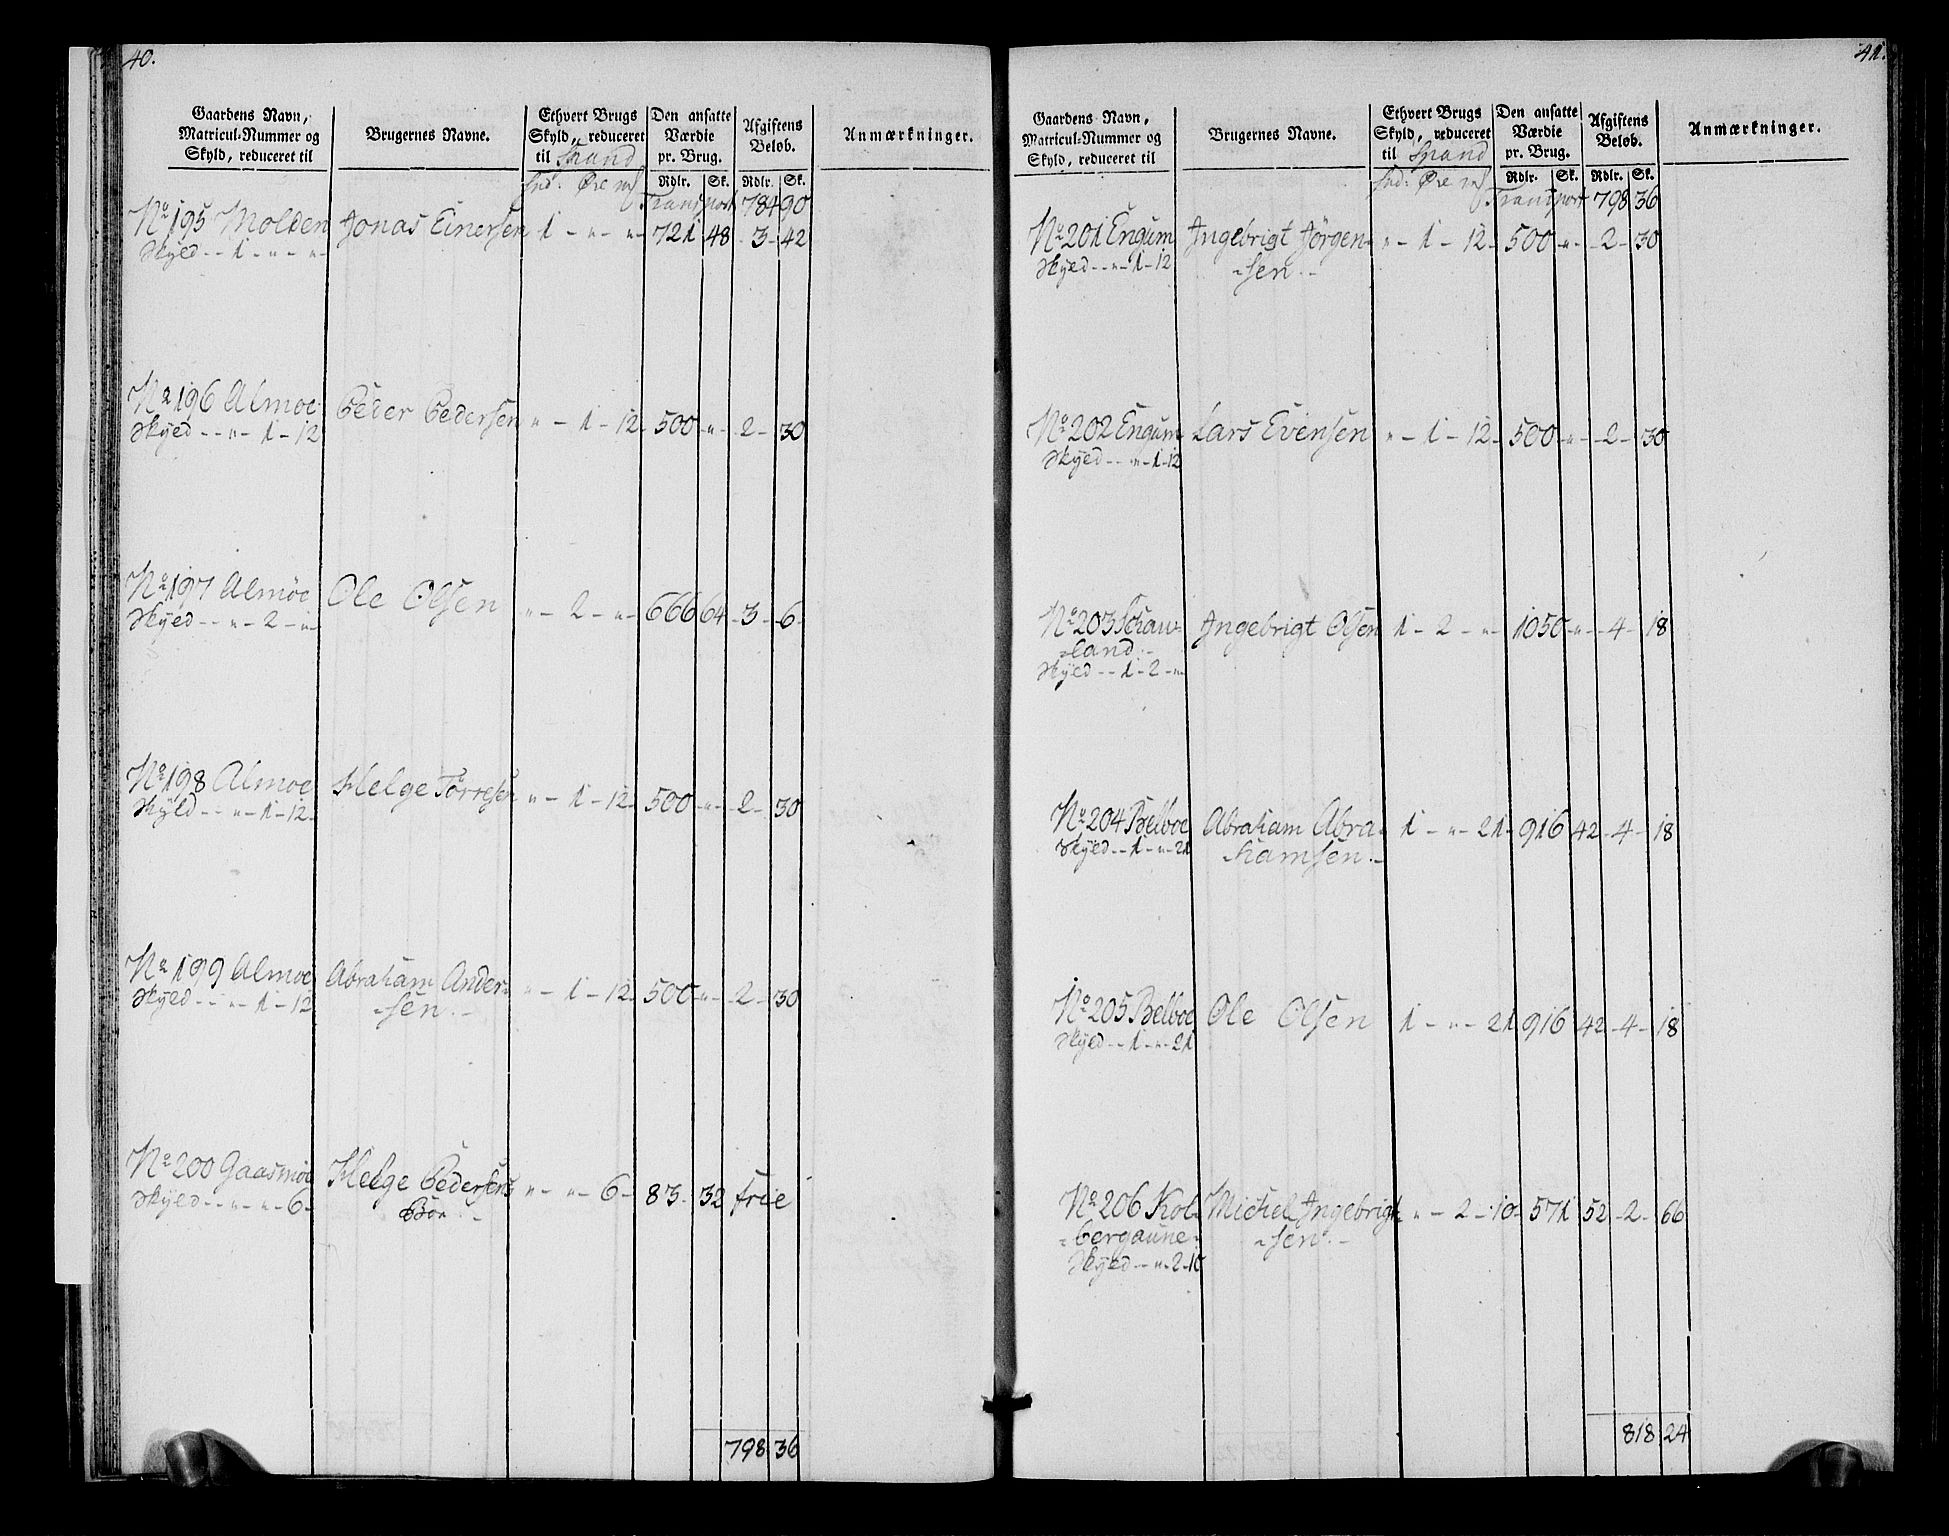 40.
Gaardens Navn, Matricul-Nummer og Skyld, reduceret til
Brugernes Navne.
Ethvert Brugs Skyld, reduceret til Spand
Den ansatte Værdie pr. Brug.
Afgiftens Beløb.
Anmærkninger.
Rdlr. Sk. Rdlr. Sk.
Transport 784 90
No 195 Molden Jonas Einersen 1 - " - " - 721 48 - 3 - 42
Skyld - - 1 - " - "
No 196 Almoe Peder Pedersen " - 1 - 12 - 500 - " - 2 - 30
Skyld - - " - 1 - 12
No 197 Almoe Ole Olsen " - 2 - " - 666 64 - 3 - 6
Skyld - - " - 2 - "
No 198 Almoe Helge Torresen " - 1 - 12 - 500 - " - 2 - 30
Skyld - - " - 1 - 12 -
No 199 Almoe Abraham Ander- " - 1 - 12 - 500 - " - 2 - 30
Skyld - - " - 1 - 12 -sen. -
No 200 Gaasmoe Helge Pedersens " - " - 6 - 83 - 32 frie
Skyld - - " - " - 6 -
798 36
41.
Gaardens Navn, Matricul-Nummer og Skyld, reduceret til
Brugernes Navne.
Ethvert Brugs Skyld, reduceret til Spand
Den ansatte Værdie pr. Brug.
Afgiftens Beløb.
Anmærkninger.
Rdlr. Sk. Rdlr. Sk.
Transport 798 36
No 201 Engum Ingebrigt Jørgen- " - 1 - 12 - 500 - " - 2 - 30
Skyld - - " - 1 - 12 -sen. -
No 202 Engum Lars Evensen " - 1 - 12 - 500 - " - 2 - 30
Skyld - - " - 1 - 12
No 203 Schau- Ingebrigt Olsen 1 - 2 - " - 1050 - " - 4 - 18
-land. -
Skyld - - 1 - 2 - "
No 204 Belboe Abraham Abra- 1 - " - 21 - 916 42 - 4 - 18
Skyld - - 1 - " - 21 -hamsen. -
No 205 Belboe Ole Olsen 1 - " - 21 916 42 - 4 - 18
Skyld - - 1 - " - 21
No 206 Kol- Michel Ingebrigt- " - 2 - 10 - 571 52 - 2 - 66
-bergaune - -sen. -
Skyld - - " - 2 - 10
818 24